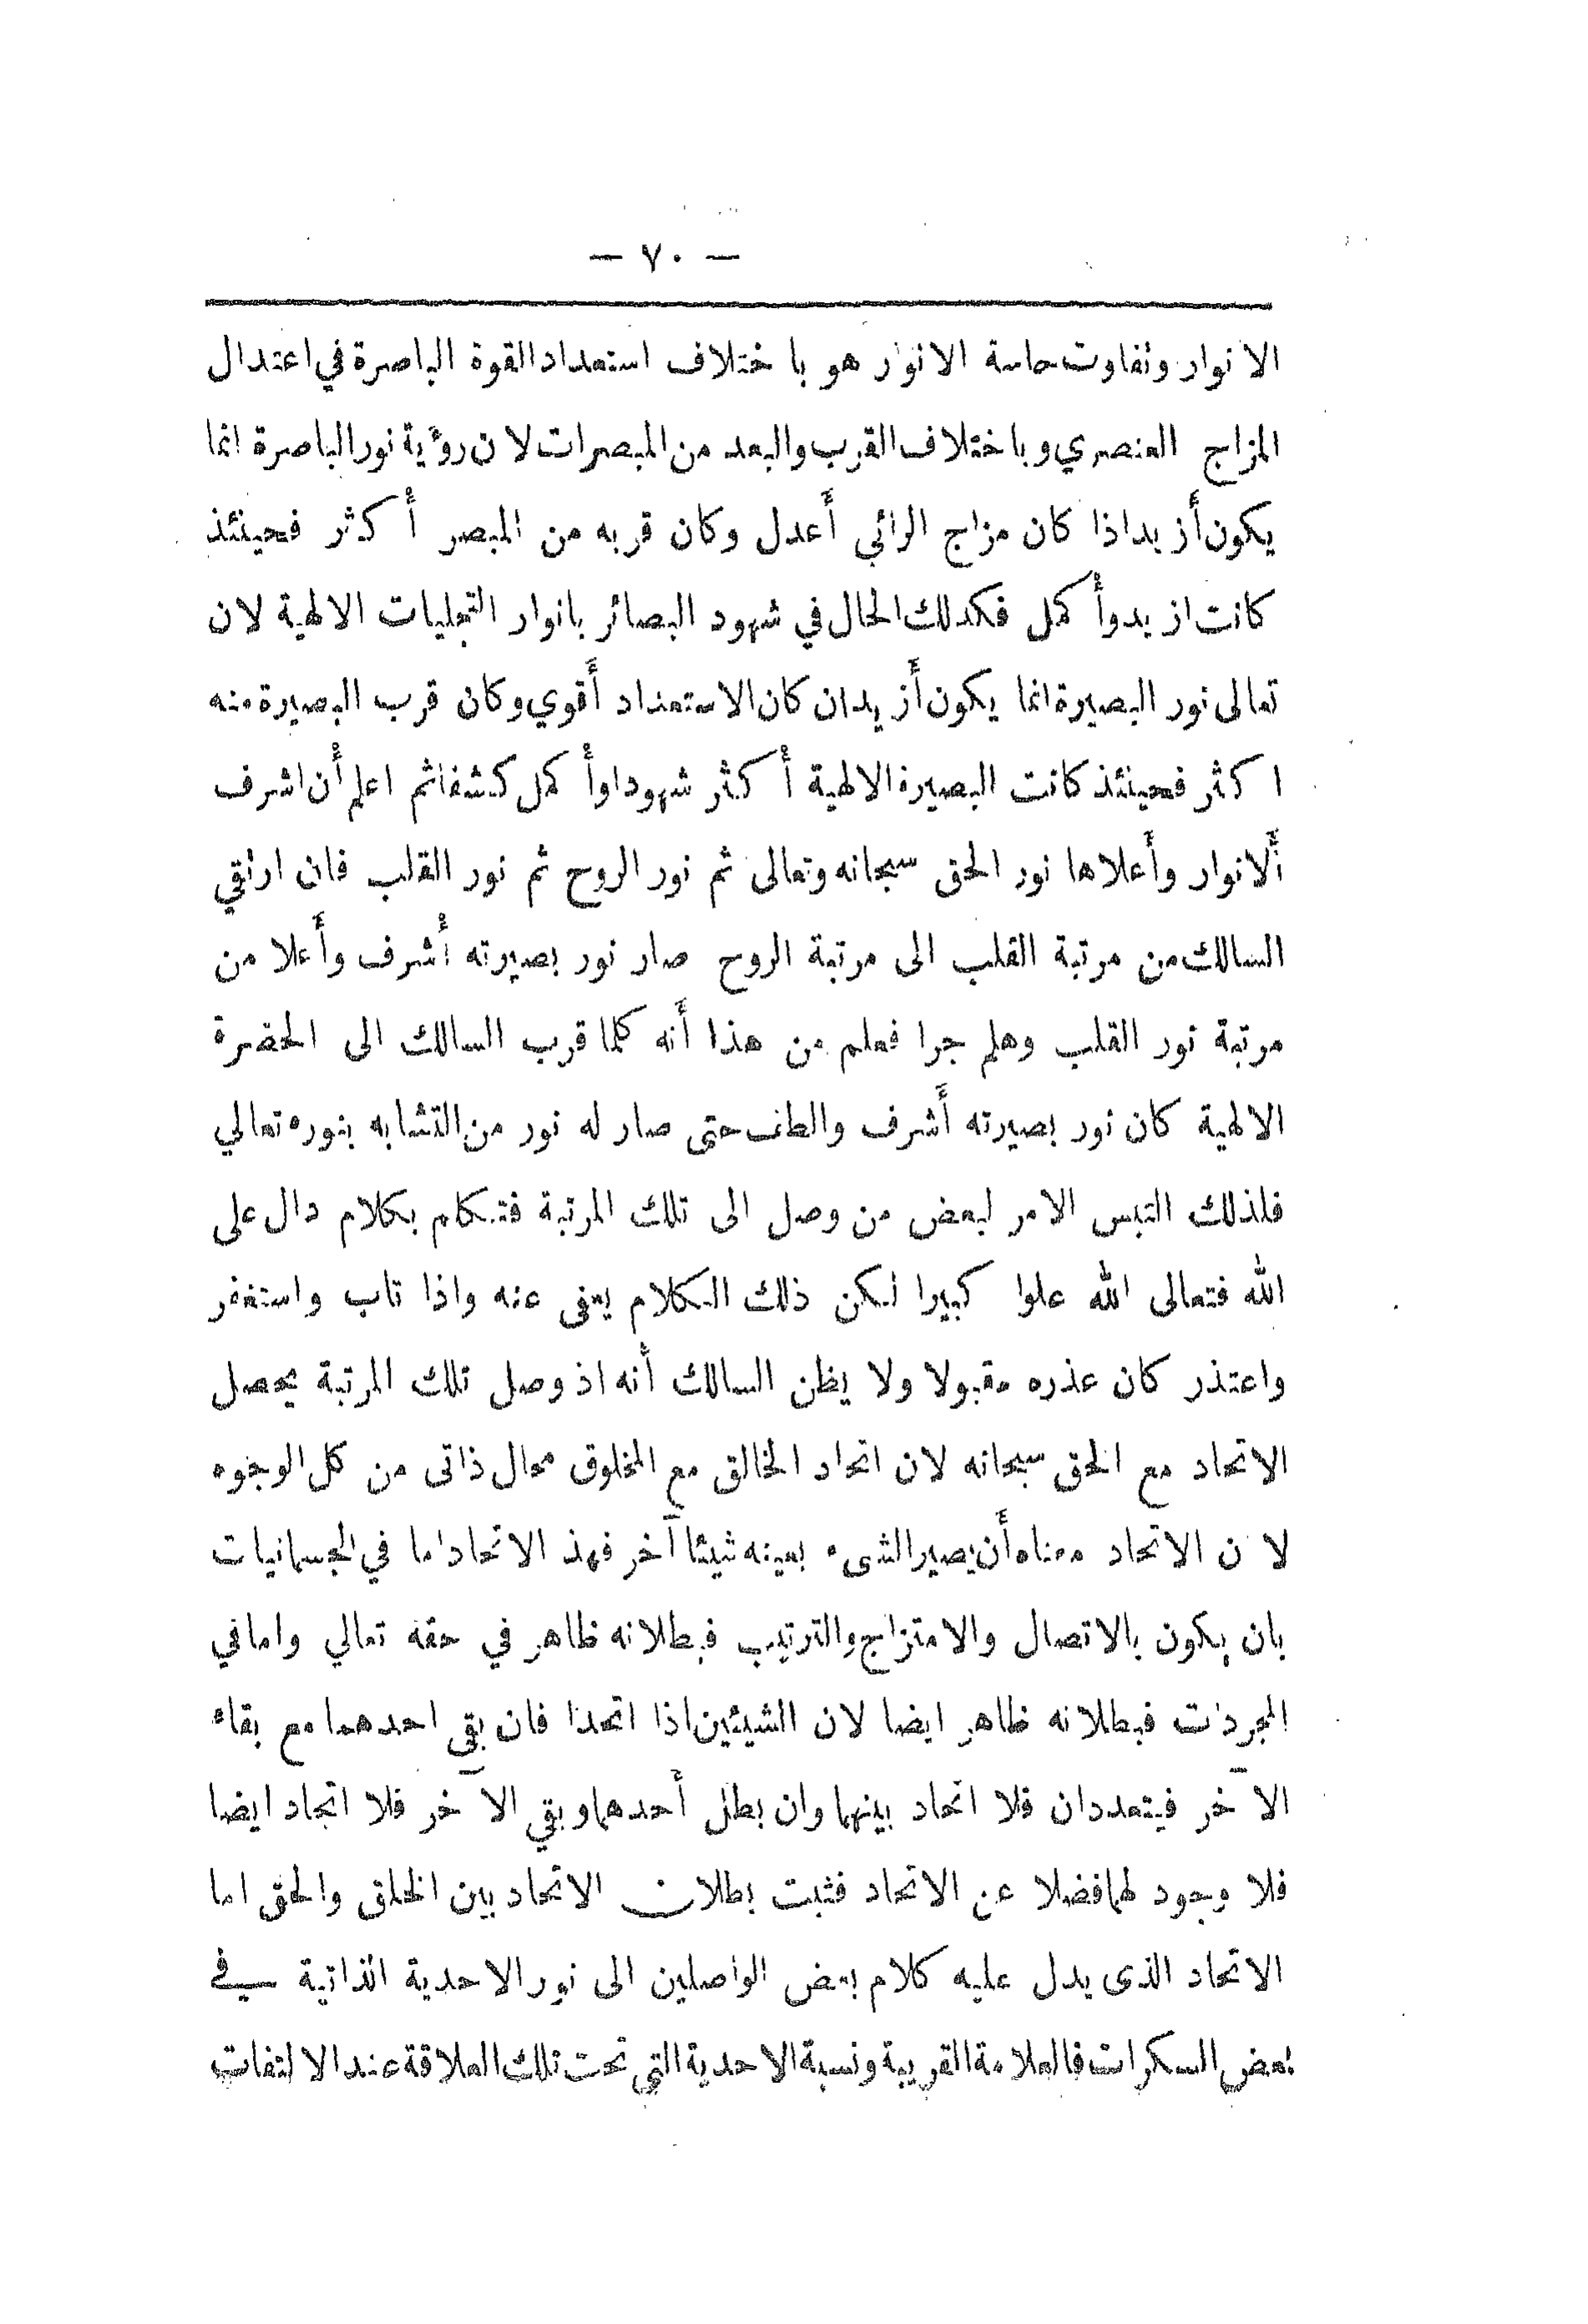 — ٧٠ —
الانوار وتفاوت حاسة الانوار هو باختلاف استعداد القوة الباصرة في اعتدال
المزاج العنصري وباختلاف القرب والبعد من المبصرات لان رؤية نور الباصرة انما
يكون أزيد اذا كان مزاج الرائي أعدل وكان قربه من المبصر أكثر فحينئذ
كانت ازيد وأكمل فكدلك الحال في شهود البصائر بانوار التجليات الالهية لان
تعالى نور البصيرة انما يكون أزيد ان كان الاستعداد أقوي وكان قرب البصيرة منه
اكثر فحينئذ كانت البصيرة الالهية أكثر شهودا وأكمل كشفا ثم اعلم أن اشرف
ألانوار وأعلاها نور الحق سبحانه وتعالى ثم نور الروح ثم نور القلب فان ارتقي
السالك من مرتبة القلب الى مرتبة الروح صار نور بصيرته أشرف وأعلا من
مرتبة نور القلب وهلم جرا فعلم من هذا أنه كلما قرب السالك الى الحضرة
الالهية كان نور بصيرته أشرف والطف حتى صار له نور من التشابه بنوره تعالي
فلذلك التبس الامر لبعض من وصل الى تلك المرتبة فتكلم بكلام دال على
الله فتعالى الله علوا كبيرا لكن ذلك الكلام يعفى عنه واذا تاب واستغفر
واعتذر كان عذره مقبولا ولا يظن السالك أنه اذ وصل تلك المرتبة يحصل
الاتحاد مع الحق سبحانه لان اتحاد الخالق مع المخلوق محال ذاتى من كل الوجوه
لان الاتحاد معناه أن يصير الشىء بعينه شيئا آخر فهذ الاتحاد اما في الجسمانيات
بان يكون بالاتصال والامتزاج والترتيب فبطلانه ظاهر في حقه تعالي واما في
المجردات فبطلانه ظاهر ايضا لان الشيئين اذا اتحدا فان بقي احدهما مع بقاء
الآخر فيتعددان فلا اتحاد بينهما وان بطل أحدهما وبقي الآخر فلا اتحاد ايضا
فلا وجود لهما فضلا عن الاتحاد فثبت بطلان الاتحاد بين الخلق والحق اما
الاتحاد الذى يدل عليه كلام بعض الواصلين الى نور الاحدية الذاتية في
بعض السكرات فالعلامة القريبة ونسبة الاحدية التي تحت تلك العلاقة عند الالتفات